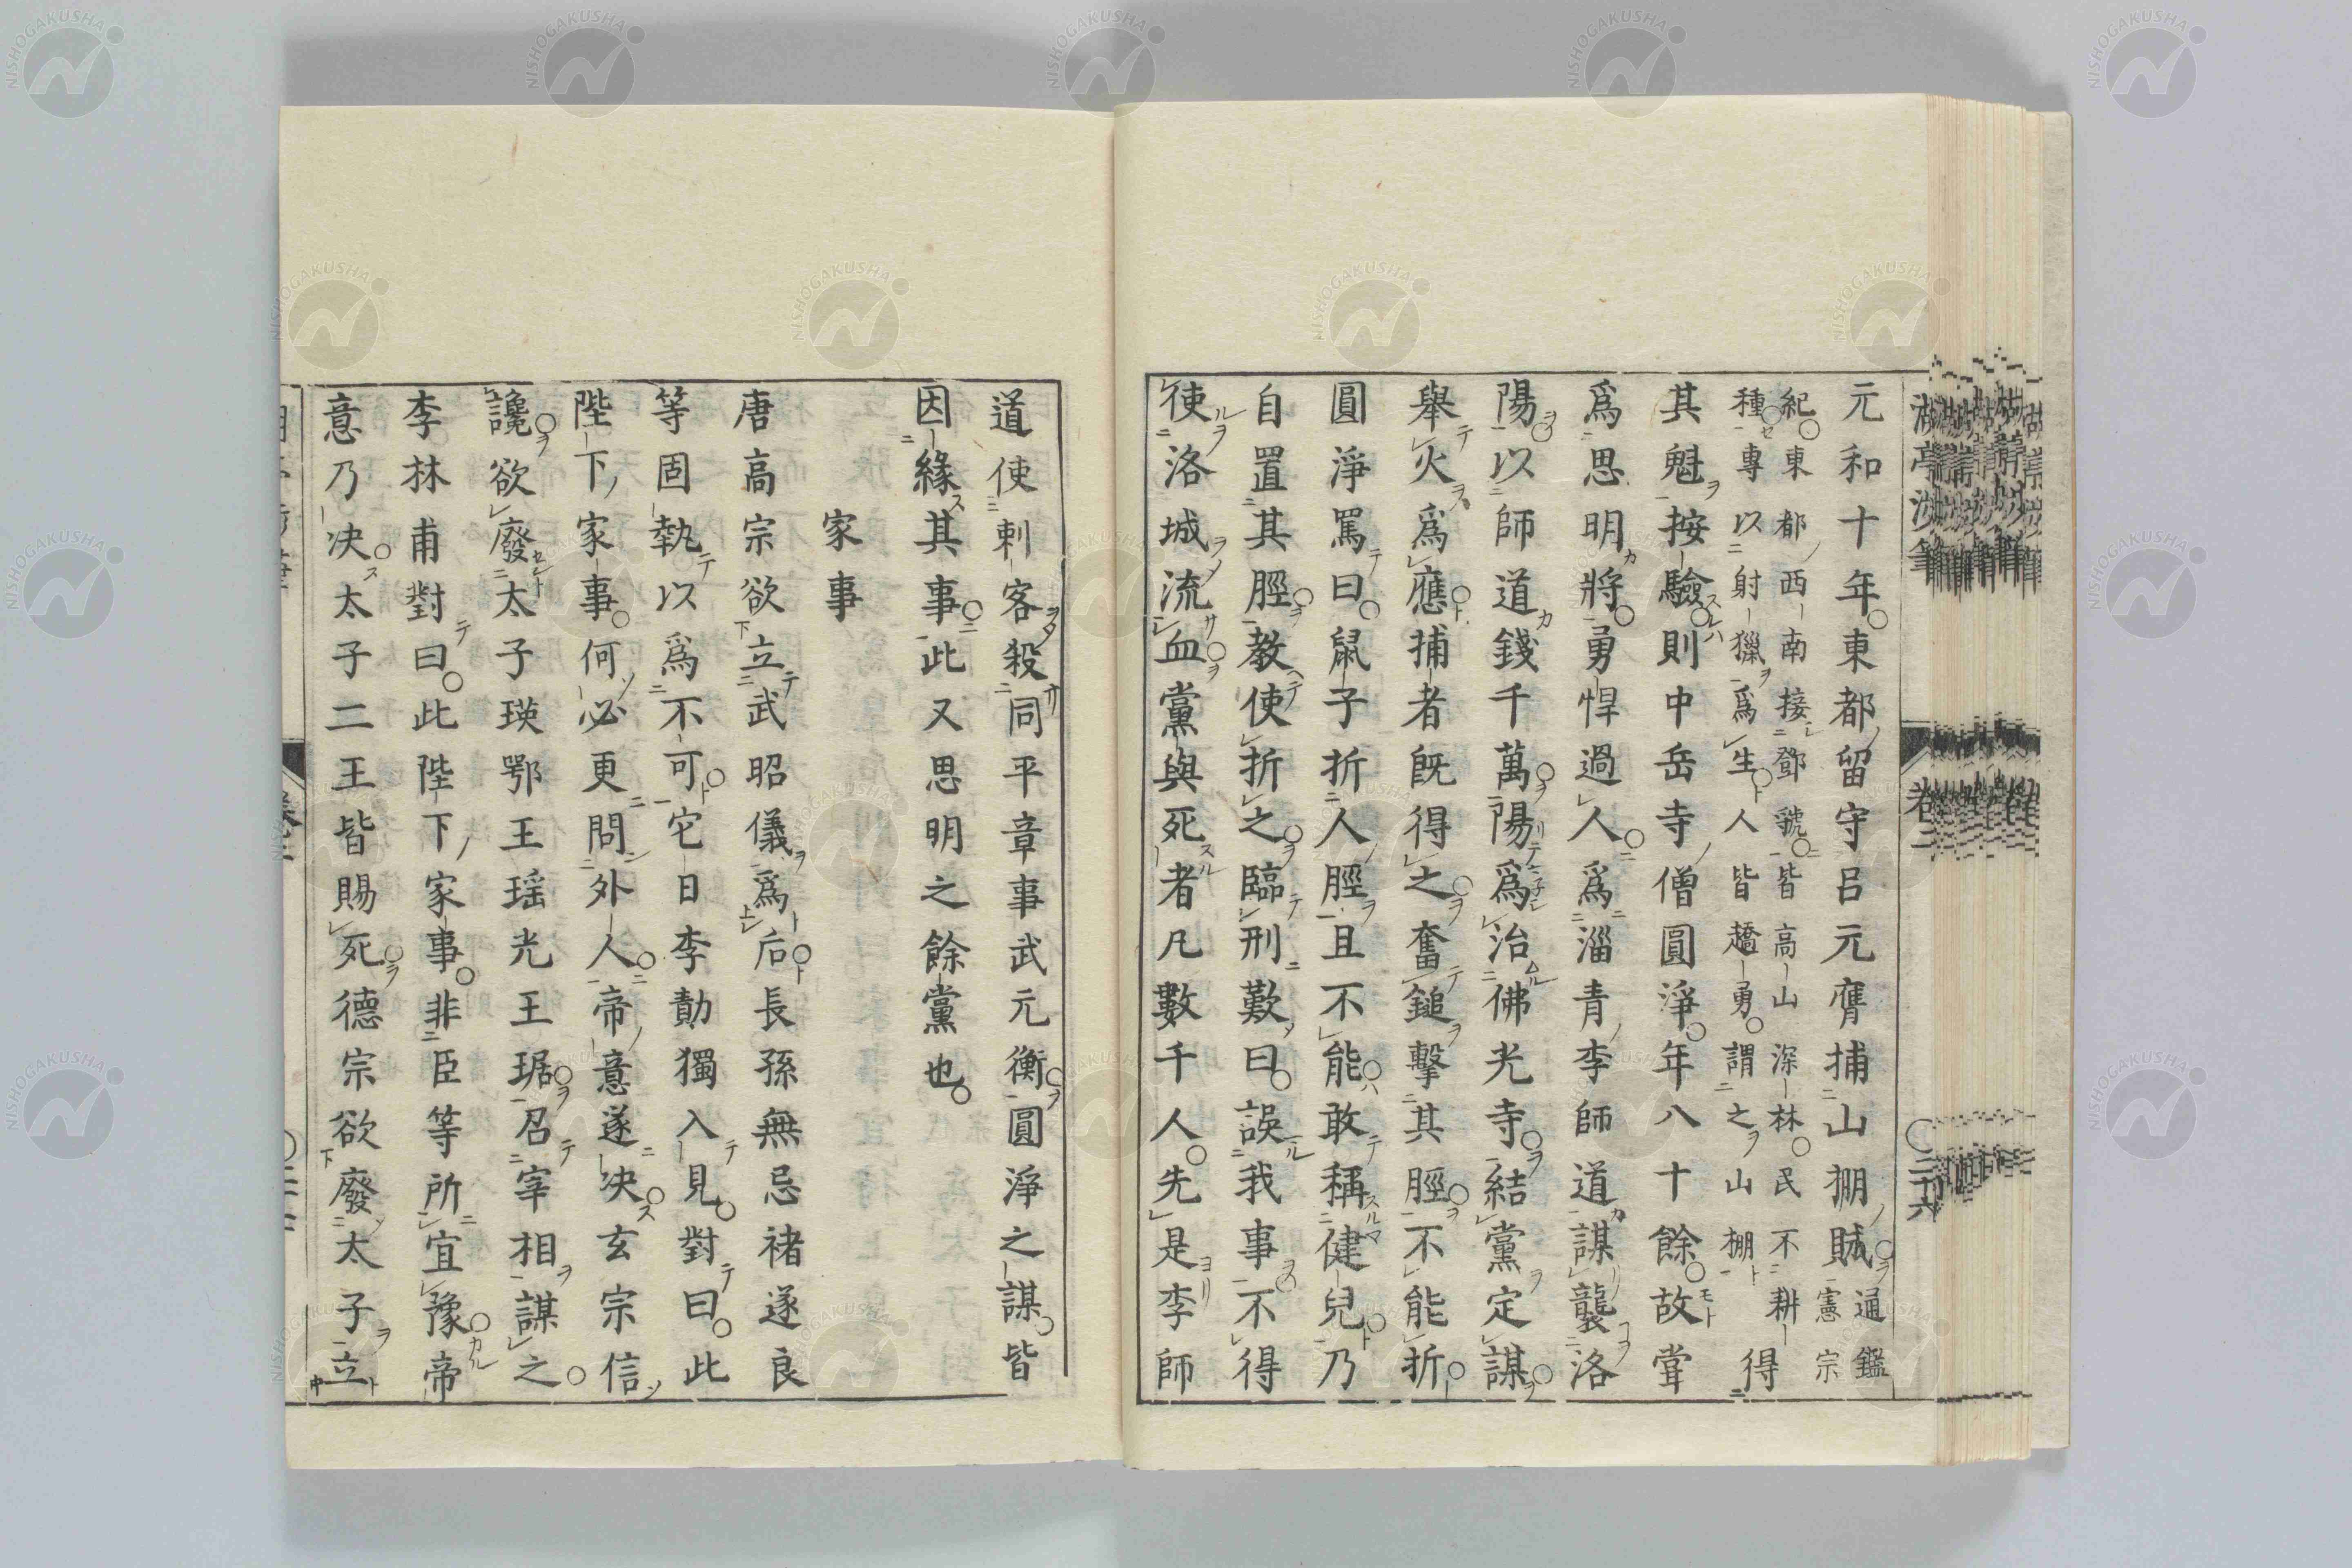 元和十年東都留守呂元膺捕山棚賊通鑑憲宗
紀東都西南接鄧虢皆高山深林民不耕
種專以射獵爲生人皆趫勇謂之山棚得
其魁按驗則中岳寺僧圓淨年八十餘故甞
爲思明將勇悍過人爲淄青李師道謀襲洛
陽以師道錢千萬陽爲治佛光寺結黨定謀
舉火爲應捕者既得之奮鎚擊其脛不能折
圓淨罵曰鼠子折人脛且不能敢稱健兒乃
自置其脛教使折之臨刑歎曰誤我事不得
使洛城流血黨與死者凡數千人先是李師
道使刺客殺同平章事武元衡圓淨之謀皆
因緣其事此又思明之餘黨也
家事
唐高宗欲立武昭儀爲后長孫無忌褚遂良
等固執以爲不可它日李勣獨入見對曰此
陛下家事何必更問外人帝意遂决玄宗信
讒欲廢太子瑛鄂王瑶光王琚召宰相謀之
李林甫對曰此陛下家事非臣等所宜豫帝
意乃决太子二王皆賜死德宗欲廢太子立
卷二
二十六
NISHOGAKUSHA